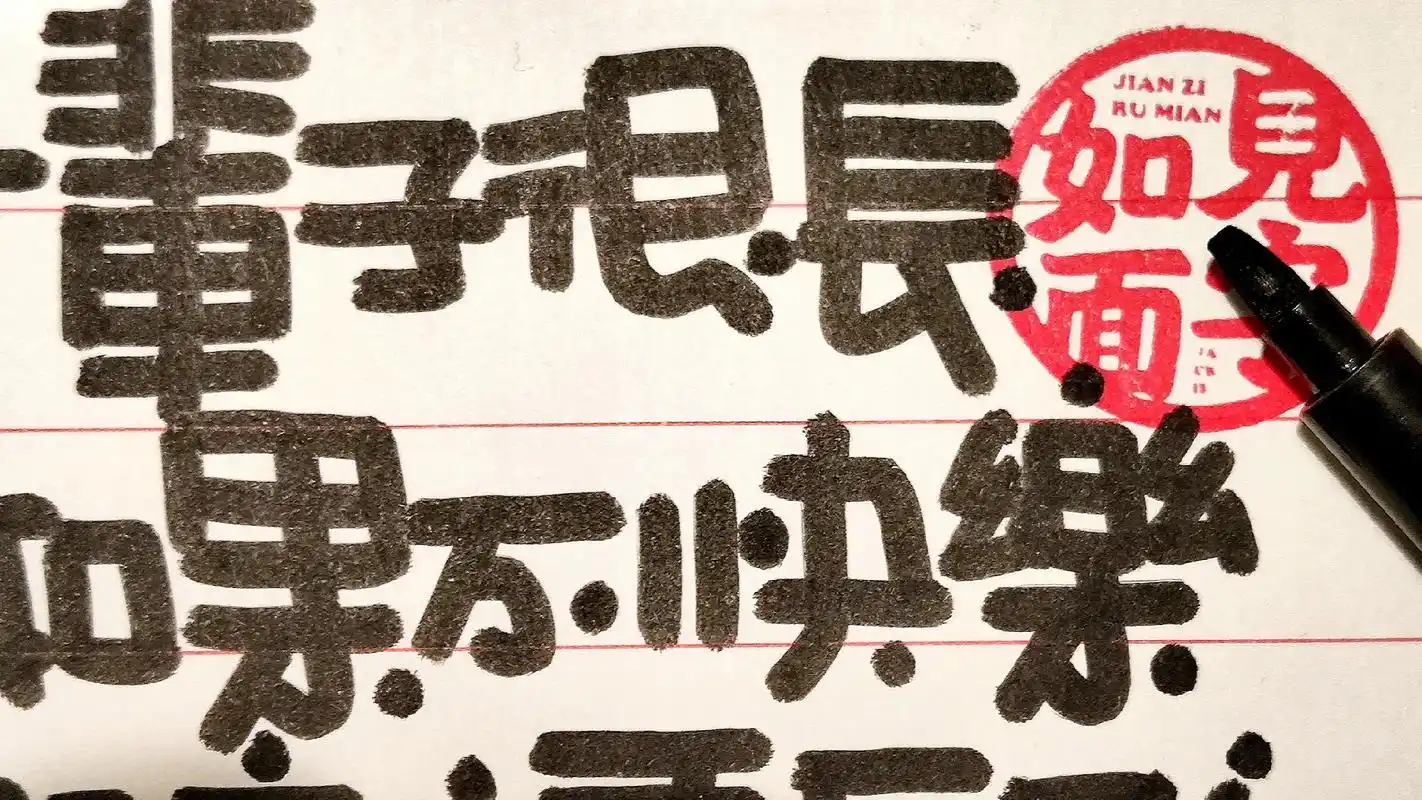 一輩子很長
如果不快樂
JIAN ZI
RU MIAN
見字
如面